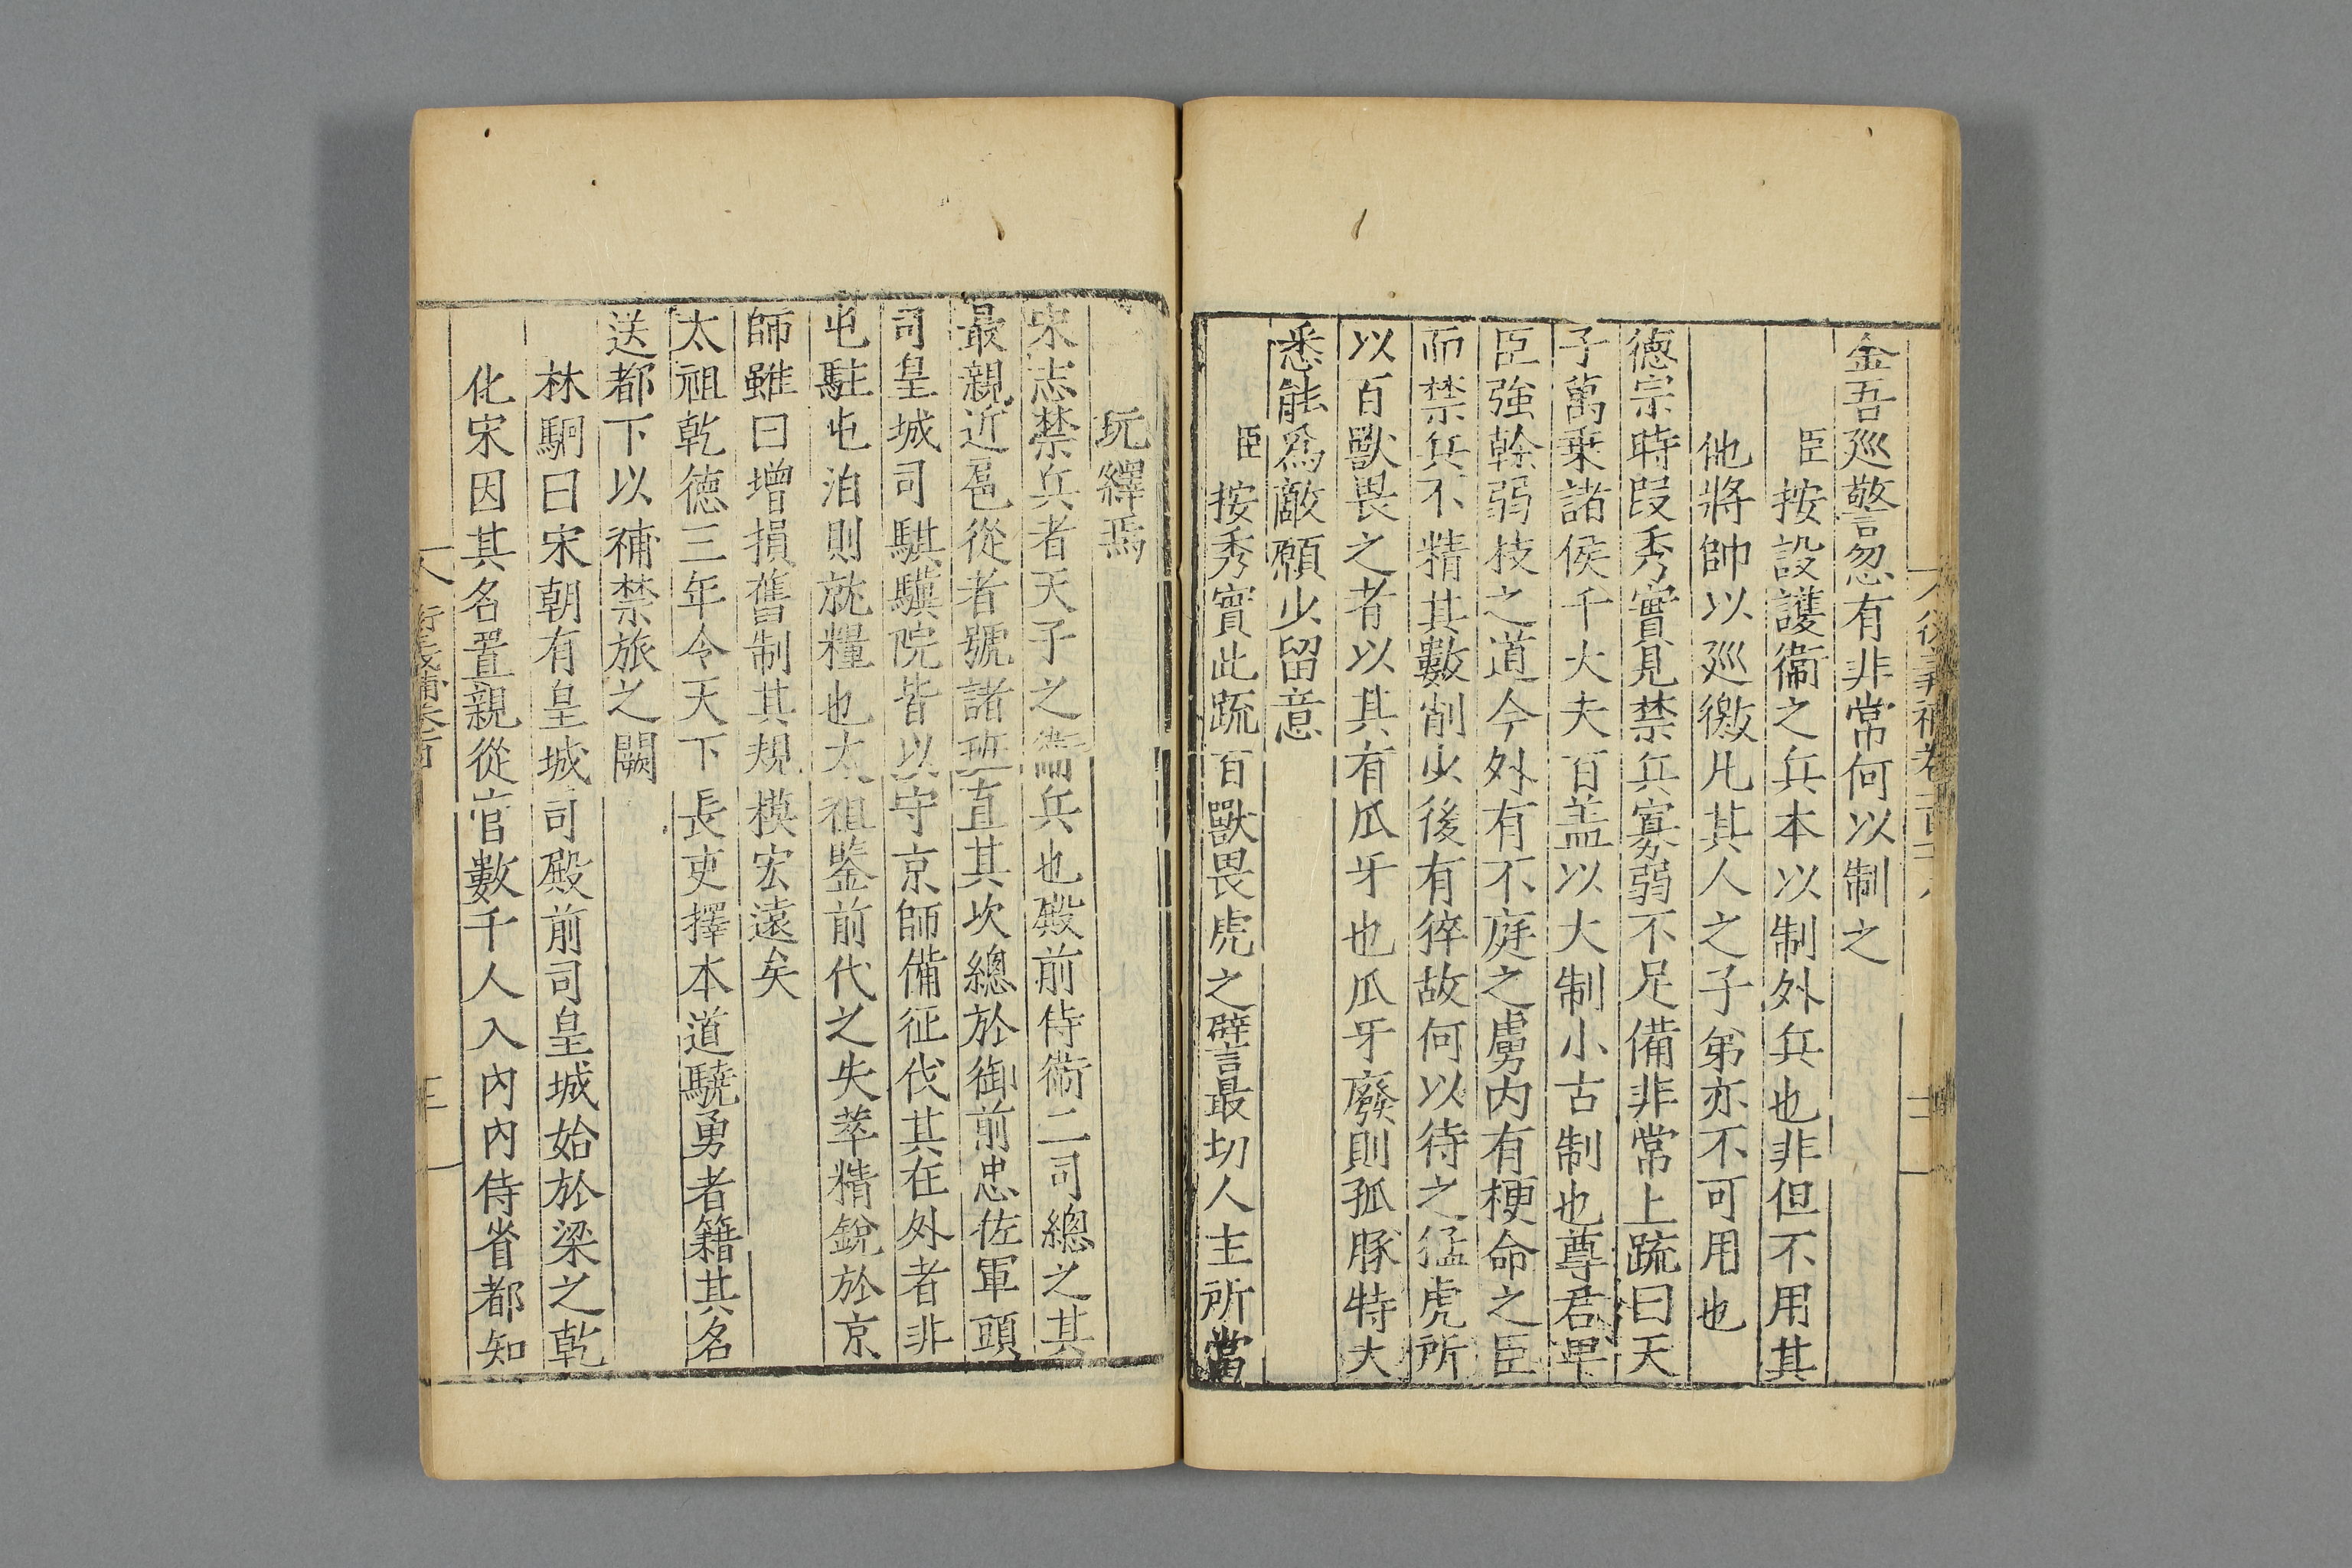 金吾廵警忽有非常何以制之
臣按設護衞之兵本以制外兵也非但不用其
他將帥以廵徼凡其人之子弟亦不可用也
德宗時段秀實見禁兵寡弱不足備非常上疏曰天
子萬乗諸侯千大夫百盖以大制小古制也尊君卑
臣強幹弱枝之道今外有不庭之虜内有梗命之臣
而禁兵不精其數削少後有猝故何以待之猛虎所
以百獸畏之者以其有爪牙也爪牙廢則孤豚特犬
悉能爲敵願少留意
臣按秀實此疏百獸畏虎之譬言最切人主所當
玩繹焉
宋志禁兵者天子之衞兵也殿前侍衞二司總之其
最親近扈從者號諸班直其次總於御前忠佐軍頭
司皇城司騏驥院皆以守京師備征伐其在外者非
屯駐屯泊則就糧也太祖鑒前代之失萃精銳於京
師雖曰增損舊制其規模宏遠矣
太祖乾德三年令天下長吏擇本道驍勇者籍其名
送都下以補禁旅之闕
林駉曰宋朝有皇城司殿前司皇城始於梁之乾
化宋因其名置親從官數千人入內內侍省都知